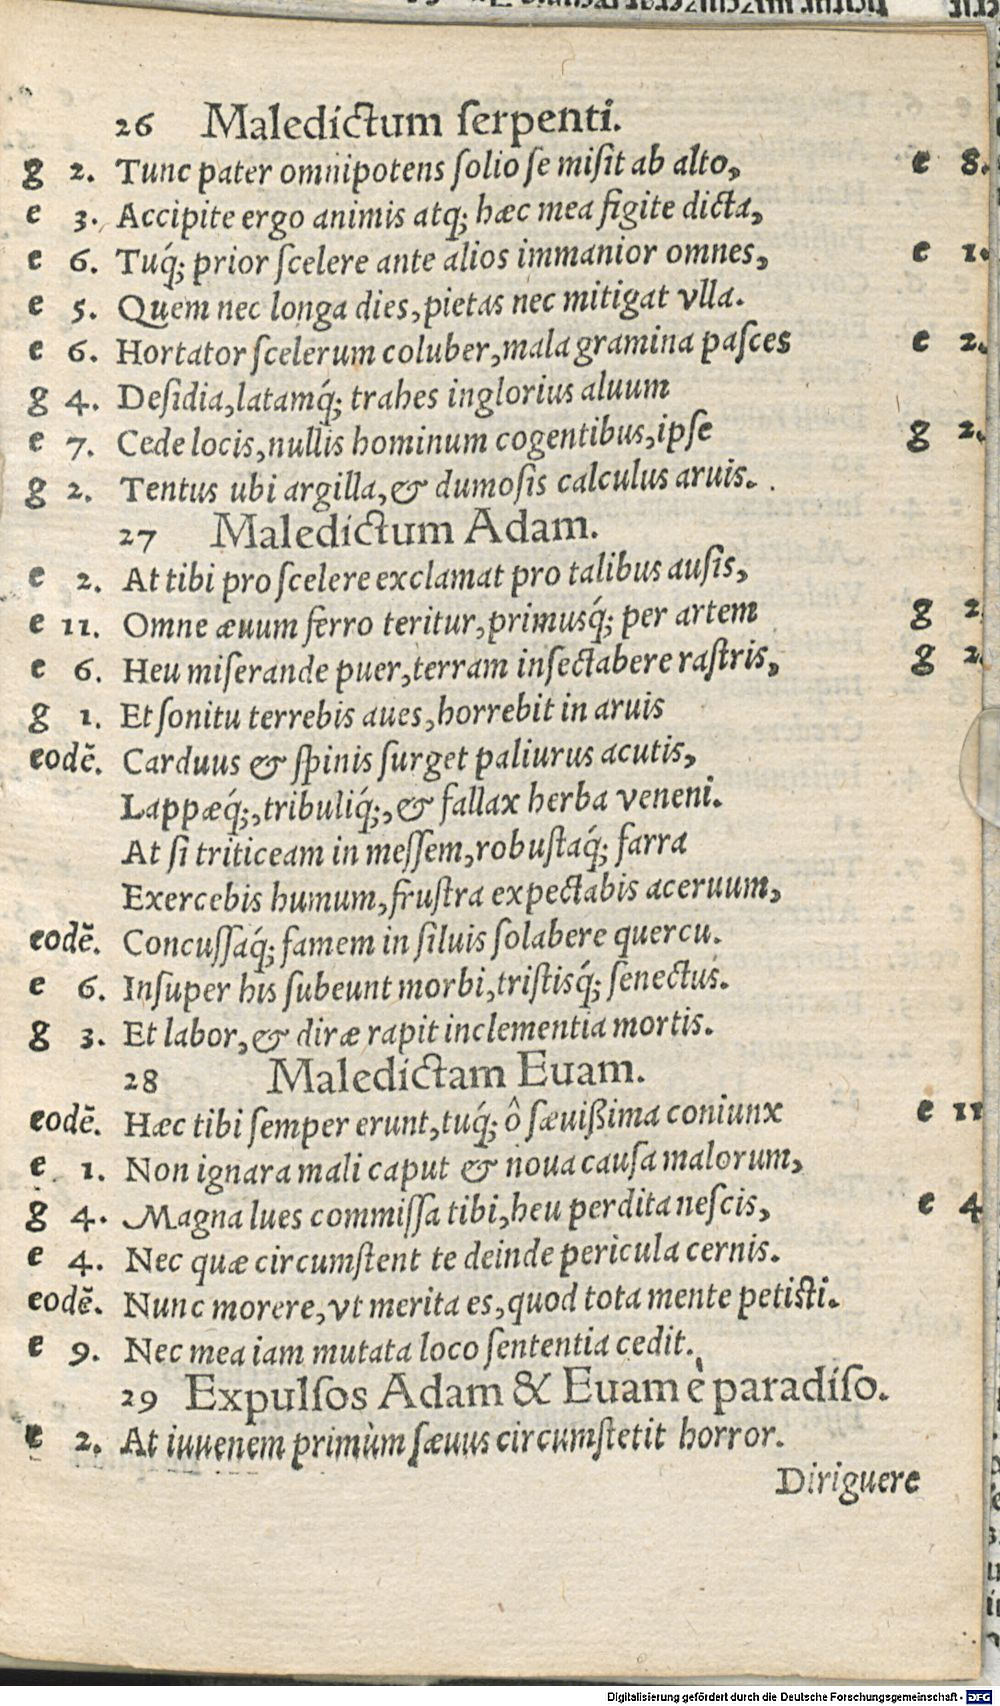 26 Maledictum ſerpenti.
g 2. Tunc pater omnipotens ſolio ſe miſit ab alto, e 8.
e 3. Accipite ergo animis atq́; hæc mea figite dicta,
e 6. Tuq́; prior ſcelere ante alios immanior omnes, e 1.
e 5. Quem nec longa dies, pietas nec mitigat vlla.
e 6. Hortator ſcelerum coluber, mala gramina paſces e 2.
g 4. Deſidia, latamq́; trahes inglorius aluum
e 7. Cede locis, nullis hominum cogentibus, ipſe g 2.
g 2. Tentus ubi argilla, & dumoſis calculus aruis.
27 Maledictum Adam.
e 2. At tibi pro ſcelere exclamat pro talibus auſis,
e 11. Omne æuum ferro teritur, primusq́; per artem g 2.
e 6. Heu miſerande puer, terram inſectabere raſtris, g 2.
g 1. Et ſonitu terrebis aues, horrebit in aruis
eodē. Carduus & ſpinis ſurget paliurus acutis,
Lappæq́;, tribuliq́;, & fallax herba veneni.
At ſi triticeam in meſſem, robuſtaq́; farra
Exercebis humum, fruſtra expectabis aceruum,
eodē. Concuſſaq́; famem in ſiluis ſolabere quercu.
e 6. Inſuper his ſubeunt morbi, triſtisq́; ſenectus.
g 3. Et labor, & diræ rapit inclementia mortis.
28 Maledictam Euam.
eodē. Hæc tibi ſemper erunt, tuq́; ô ſæuißima coniunx e 11
e 1. Non ignara mali caput & noua cauſa malorum,
g 4. Magna lues commiſſa tibi, heu perdita neſcis, e 4
e 4. Nec quæ circumſtent te deinde pericula cernis.
eodē. Nunc morere, vt merita es, quod tota mente petiſti.
e 9. Nec mea iam mutata loco ſententia cedit.
29 Expulſos Adam & Euam è paradiſo.
e 2. At iuuenem primùm ſæuus circumſtetit horror.
Diriguere
Digitalisierung gefördert durch die Deutsche Forschungsgemeinschaft - DFG